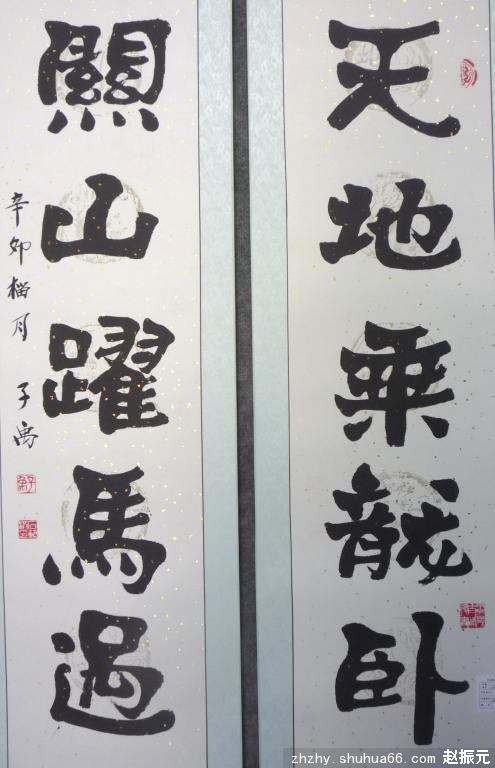 天地乗龍卧
關山躍馬過
辛卯榴月 子禹
zhzhy.shuhua66.com 赵振元